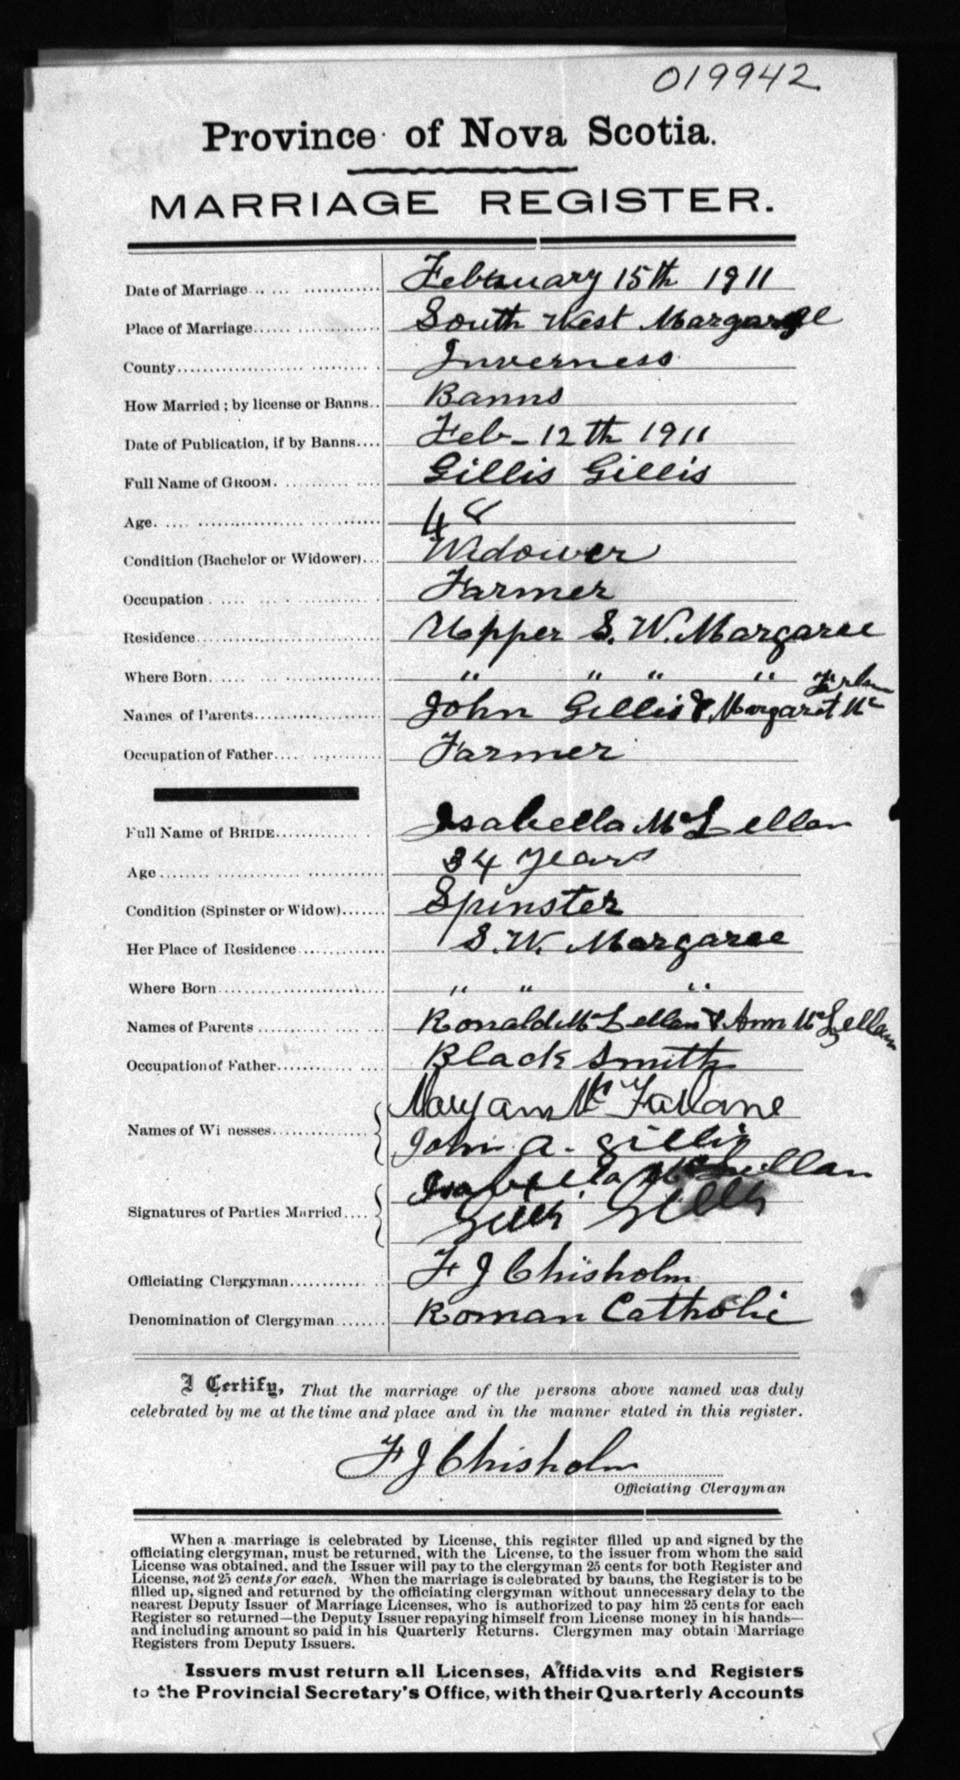 019942
Province of Nova Scotia.
MARRIAGE REGISTER.
Date of Marriage February 15th 1911
Place of Marriage South West Margaree
County Inverness
How Married; by license or Banns Banns
Date of Publication, if by Banns Feb - 12th 1911
Full Name of GROOM. Gillis Gillis
Age. 48
Condition (Bachelor or Widower) Widower
Occupation Farmer
Residence Upper S. W. Margaree
Where Born " " " "
Names of Parents John Gillis & Margaret Mc
Occupation of Father Farmer
Full Name of BRIDE Isabella McLellan
Age 34 years
Condition (Spinster or Widow) Spinster
Her Place of Residence S. W. Margaree
Where Born " " "
Names of Parents Ronald McLellan & Ann McLellan
Occupation of Father Black Smith
Names of Wi nesses Mary ann Mc Farlane
John A. Gillis
Isabella McLellan
Signatures of Parties Married Gillis Gillis
Officiating Clergyman F J Chisholm
Denomination of Clergyman Roman Catholic
I Certify, That the marriage of the persons above named was duly
celebrated by me at the time and place and in the manner stated in this register.
F J Chisholm
Officiating Clergyman
When a marriage is celebrated by License, this register filled up and signed by the
officiating clergyman, must be returned, with the License, to the issuer from whom the said
License was obtained, and the Issuer will pay to the clergyman 25 cents for both Register and
License, not 25 cents for each. When the marriage is celebrated by banns, the Register is to be
filled up, signed and returned by the officiating clergyman without unnecessary delay to the
nearest Deputy Issuer of Marriage Licenses, who is authorized to pay him 25 cents for each
Register so returned—the Deputy Issuer repaying himself from License money in his hands—
and including amount so paid in his Quarterly Returns. Clergymen may obtain Marriage
Registers from Deputy Issuers.
Issuers must return all Licenses, Affidavits and Registers
to the Provincial Secretary's Office, with their Quarterly Accounts